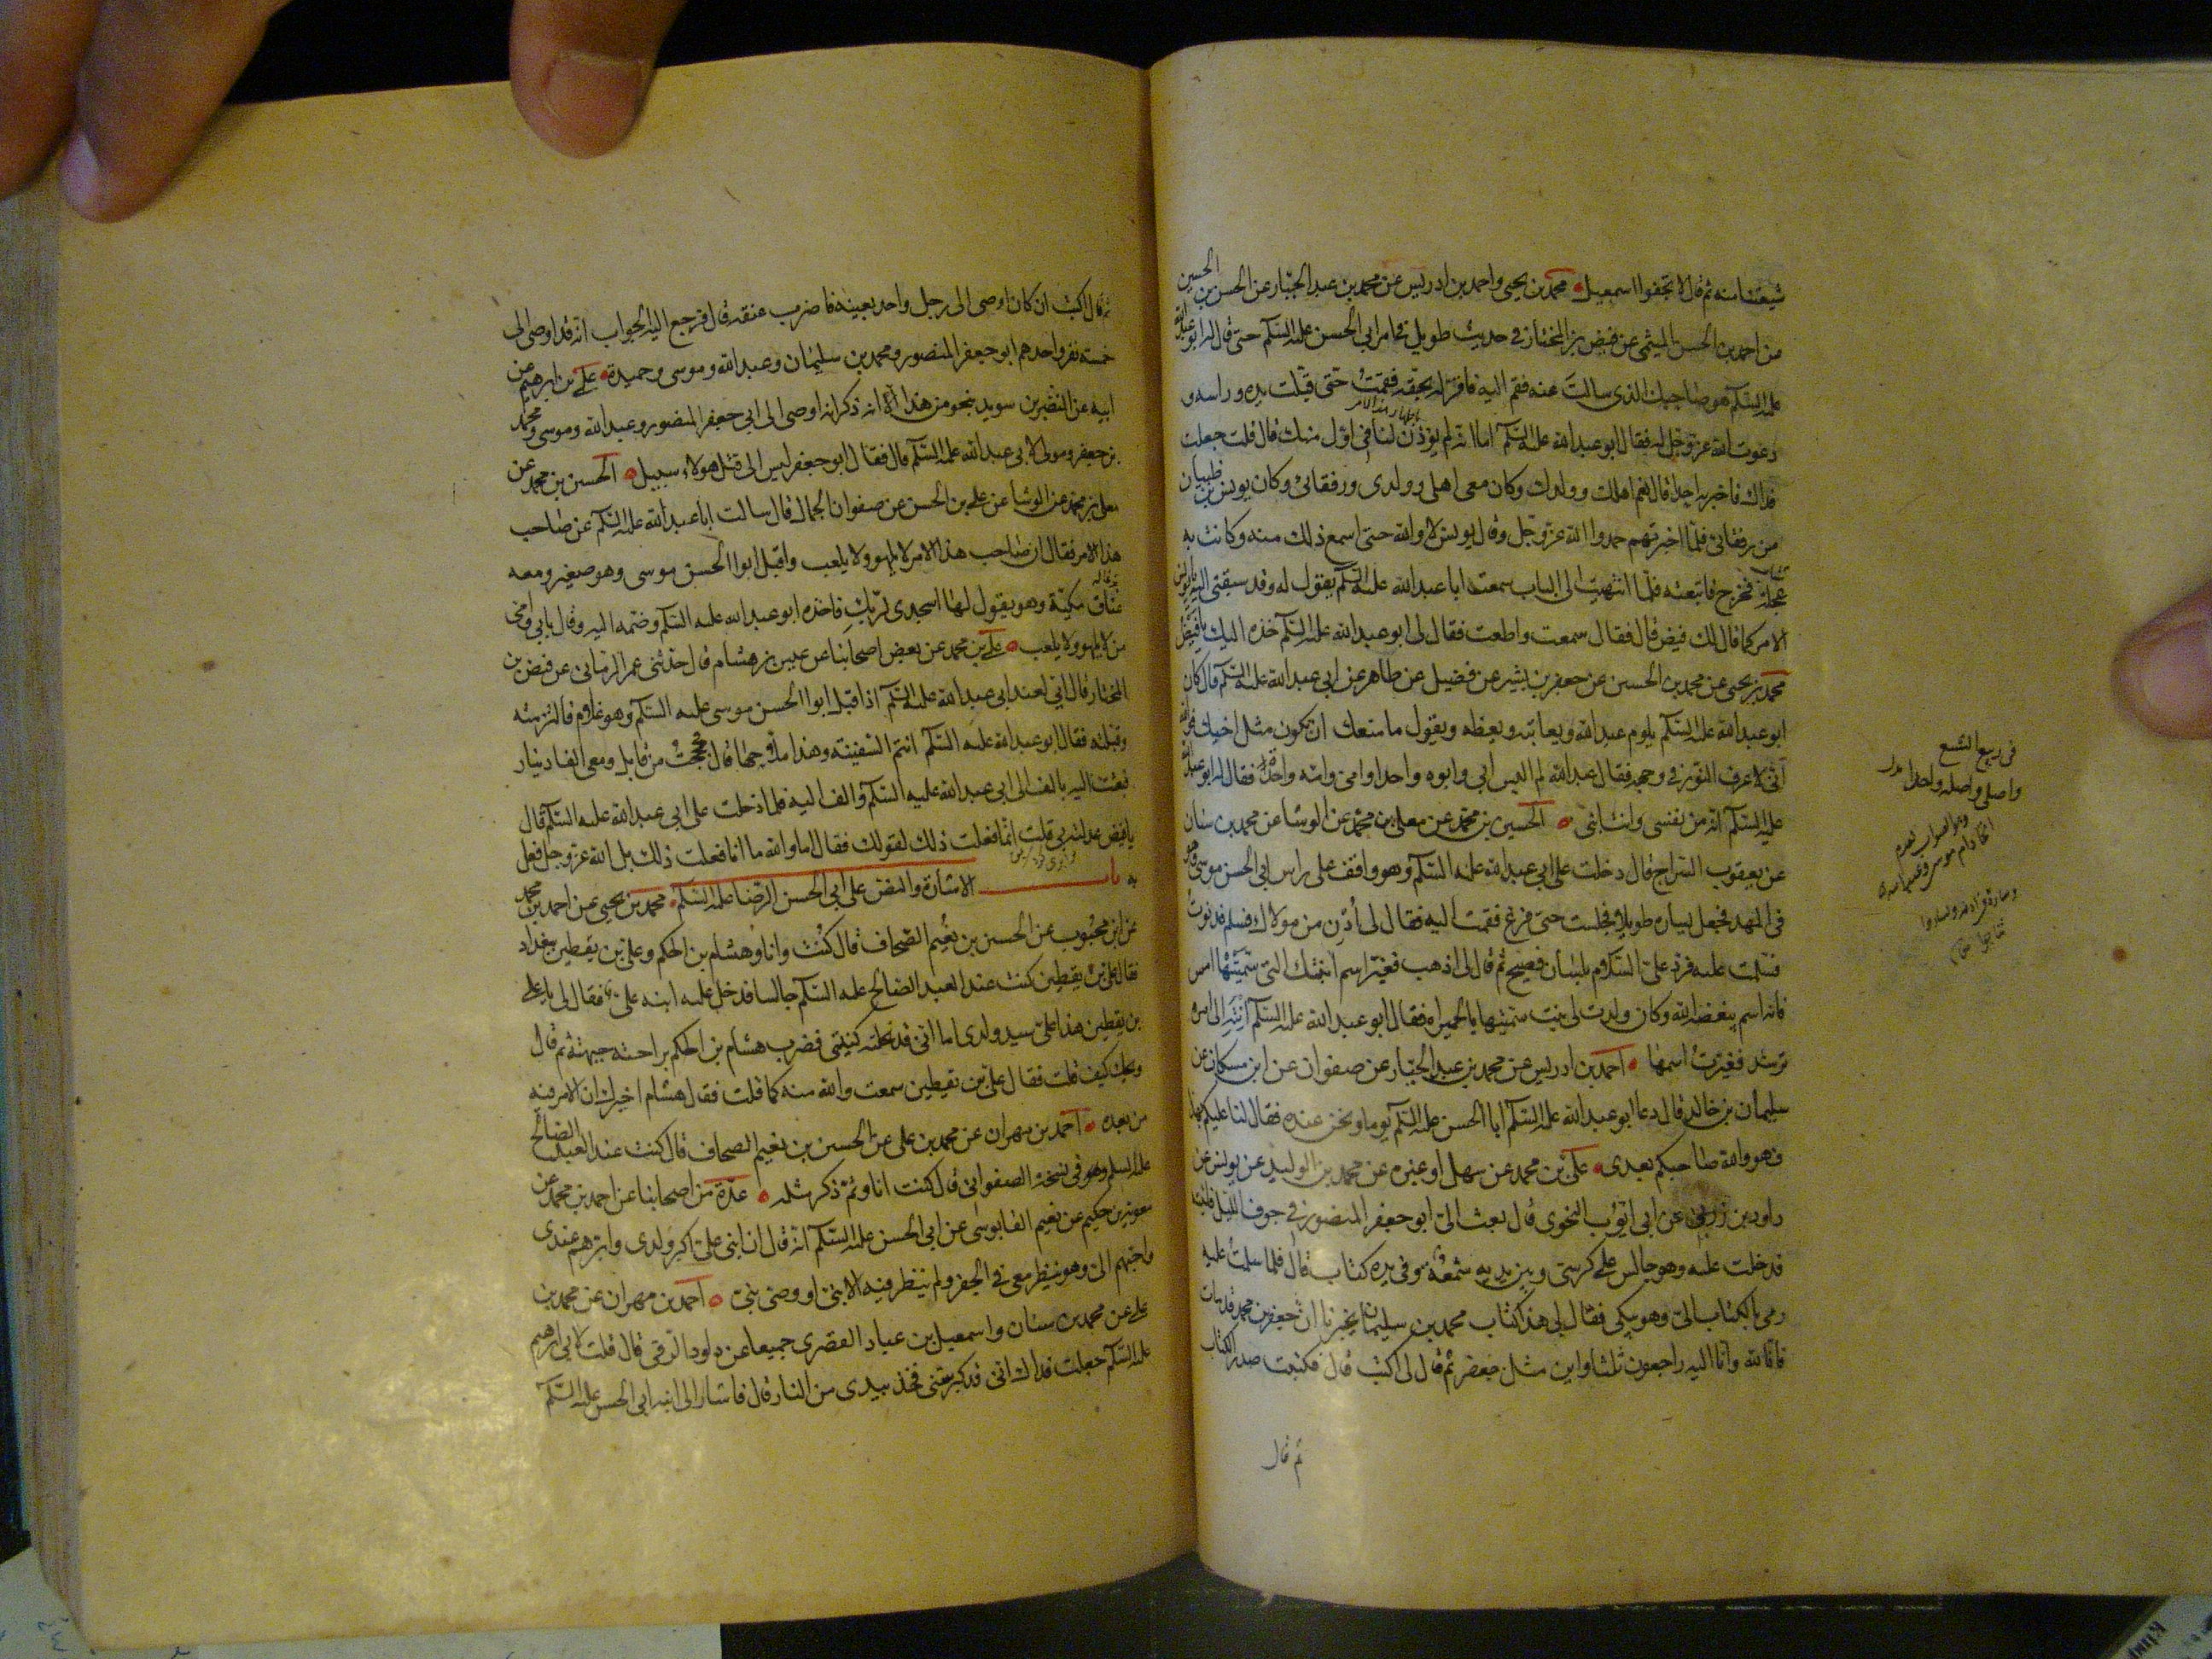 شيعتنا منه ثم قال لا تجفوا اسمعيل محمد بن يحيى واحمد بن ادريس عن محمد بن عبد الجبار عن الحسن بن الحسين
من احمد بن الحسن الميثمى عن فيض بن المختار فى حديث طويل فى امر ابى الحسن عليه السلام حتى قال له ابو عبد الله
عليه السلام هو صاحبك الذى سالت عنه فقم اليه فاقر له بحقه فقمت حتى قبلت يده وراسه و
دعوت الله عز وجل له فقال ابو عبد الله عليه السلام اما انه لم يؤذن لنا فى اول منك قال قلت جعلت
فداك فاخبر به احدا قال نعم اهلك وولدك وكان معى اهلى وولدى ورفقائى وكان يونس بن ظبيان
من رفقائى فلما اخبرتهم حمدوا الله عز وجل وقال يونس لا والله حتى اسمع ذلك منه وكانت به
عجلة فخرج فاتبعته فلما انتهيت الى الباب سمعت ابا عبد الله عليه السلام يقول له وقد سبقنى اليه يا يونس
الامر كما قال لك فيض قال فقال سمعت واطعت فقال لى ابو عبد الله عليه السلام خذه اليك يا فيض
محمد بن يحيى عن محمد بن الحسين عن جعفر بن بشير عن فضيل عن طاهر عن ابى عبد الله عليه السلام قال كان
ابو عبد الله عليه السلام يلوم عبد الله ويعاتبه ويعظه ويقول ما منعك ان تكون مثل اخيك فوالله
انى لاعرف النور فى وجهه فقال عبد الله لم اليس ابى وابوه واحدا وامى وامه واحدة فقال له ابو عبد الله
عليه السلام انه من نفسى وانت ابنى الحسين بن محمد عن معلى بن محمد عن الوشا عن محمد بن سنان
عن يعقوب السراج قال دخلت على ابى عبد الله عليه السلام وهو واقف على راس ابى الحسن موسى وهو
فى المهد فجعل يساره طويلا فجلست حتى فرغ فقمت اليه فقال لى أدن من مولاك فسلم فدنوت
فسلمت عليه فرد على السلام بلسان فصيح ثم قال لى اذهب فغير اسم ابنتك التى سميتها امس
فانه اسم يبغضه الله وكان ولدت لى بنت سميتها بالحميراء فقال ابو عبد الله عليه السلام انته الى امره
ترشد فغيرت اسمها احمد بن ادريس عن محمد بن عبد الجبار عن صفوان عن ابن مسكان عن
سليمان بن خالد قال دعا ابو عبد الله عليه السلام ابا الحسن عليه السلام يوما ونحن عنده فقال لنا عليكم بهذا
فهو والله صاحبكم بعدى على بن محمد عن سهل او غيره عن محمد بن الوليد عن يونس عن
داود بن زربى عن ابى ايوب النحوى قال بعث الى ابو جعفر المنصور فى جوف الليل فاتيته
فدخلت عليه وهو جالس على كرسى وبين يديه شمعة وفى يده كتاب قال فلما سلمت عليه
رمى بالكتاب الى وهو يبكى فقال لى هذا كتاب محمد بن سليمان يخبرنا ان جعفر بن محمد قد مات
فانا لله وانا اليه راجعون ثلثا واين مثل جعفر ثم قال لى اكتب قال فكتبت صدر الكتاب
ثم قال
ثم قال اكتب ان كان اوصى الى رجل واحد بعينه فاضرب عنقه قال فرجع اليه الجواب انه قد اوصى الى
خمسة نفر واحدهم ابو جعفر المنصور ومحمد بن سليمان وعبد الله وموسى وحميدة على بن ابرهيم عن
ابيه عن النضر بن سويد بنحو من هذا الا انه ذكر انه اوصى الى ابى جعفر المنصور وعبد الله وموسى ومحمد
بن جعفر ومولى لابى عبد الله عليه السلام قال فقال ابو جعفر ليس الى قتل هولاء سبيل الحسين بن محمد عن
معلى بن محمد عن الوشا عن على بن الحسن عن صفوان الجمال قال سالت ابا عبد الله عليه السلام عن صاحب
هذا الامر فقال ان صاحب هذا الامر لا يلهو ولا يلعب واقبل ابوا الحسن موسى وهو صغير ومعه
عناق مكية وهو يقول لها اسجدى لربك فاخذه ابو عبد الله عليه السلام وضمه اليه وقال بابى وامى
من لا يلهو ولا يلعب على بن محمد عن بعض اصحابنا عن عبيس بن هشام قال حدثنى عمر الرمانى عن فيض بن
المختار قال انى لعند ابى عبد الله عليه السلام اذا قبل ابوا الحسن موسى عليه السلام وهو غلام فالتزمته
وقبلته فقال ابو عبد الله عليه السلام انتم السفينة وهذا ملاحها قال فحججت من قابل ومعى الفا دينار
فبعثت اليه بالف الى ابى عبد الله عليه السلام والف اليه فلما دخلت على ابى عبد الله عليه السلام قال
يا فيض عدلته بى قلت انما فعلت ذلك لقولك فقال اما والله ما انا فعلت ذلك بل الله عز وجل فعل
به باب الاشارة والنص على ابى الحسن الرضا عليه السلام محمد بن يحيى عن احمد بن محمد
عن ابن محبوب عن الحسين بن نعيم الصحاف قال كنت وانا وهشام بن الحكم وعلى بن يقطين ببغداد
فقال على بن يقطين كنت عند العبد الصالح عليه السلام جالسا فدخل عليه ابنه على فقال لى يا على
بن يقطين هذا على سيد ولدى اما انى قد نحلته كنيتى فضرب هشام بن الحكم براحته جبهته ثم قال
ويحك كيف قلت فقال على بن يقطين سمعت والله منه كما قلت فقال هشام اخبرك ان الامر فيه
من بعده احمد بن مهران عن محمد بن على عن الحسين بن نعيم الصحاف قال كنت عند العبد الصالح
عليه السلم وهو فى نسخة الصفوانى قال كنت انا وثم ذكر مثله عدة من اصحابنا عن احمد بن محمد عن
معوية بن حكيم عن نعيم القابوسى عن ابى الحسن عليه السلام انه قال ان ابنى على اكبر ولدى وابرهم عندى
واحبهم الى وهو ينظر معى فى الجفر ولم ينظر فيه الا نبى او وصى نبى احمد بن مهران عن محمد بن
على عن محمد بن سنان واسمعيل بن عباد القصرى جميعا عن داود الرقى قال قلت لابى ابرهيم
عليه السلام جعلت فداك انى قد كبر سنى فخذ بيدى من النار قال فاشار الى ابنه ابى الحسن عليه السلام